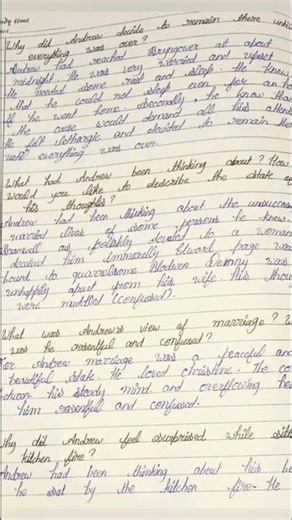 Why did Andrew decide to remain there until
everything was over?
Andrew had reached Bryngower at about
midnight. He was very worried and upset
He needed some rest and sleep. He knew
that he could not sleep even for an ho
If he went home. Secondly, he knew tha
the case would demand all his attent
He felt lethargic and decided to remain the
until everything was over.
What had Andrew been thinking about? How
would you like to describe the state of
his thoughts?
Andrew had been thinking about the unsuccess
married lives of some persons he knew.
Bramwell was foolishly devoted to a woman
deceived him Edward page was
bound to quarrelsome Blodwen Denny was
unhappily apart from his wife his thou
were muddled (confused).
What was Andrew's view of marriage? W
was he resentful and confused?
For Andrew marriage was a peaceful and
beautiful state. He loved christine. The co
between his steady mind and overflowing hea
him resentful and confused.
Why did Andrew feel surprised while sitti
kitchen fire?
Andrew had been thinking about his b
he sat by the kitchen fire. He